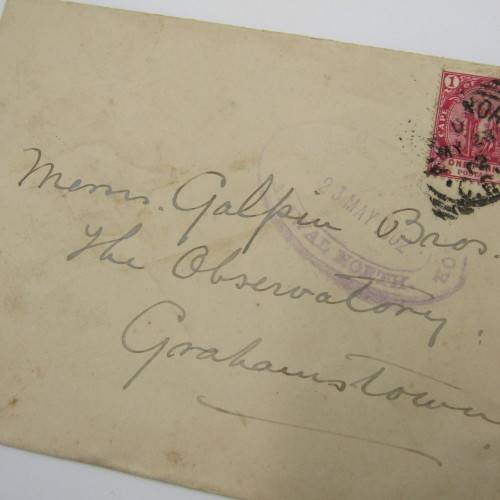 1
CAPE OF
ONE
23 MAY 1902
AL NORTH
02
Messrs. Galpin Bros.
The Observatory.
Grahamstown